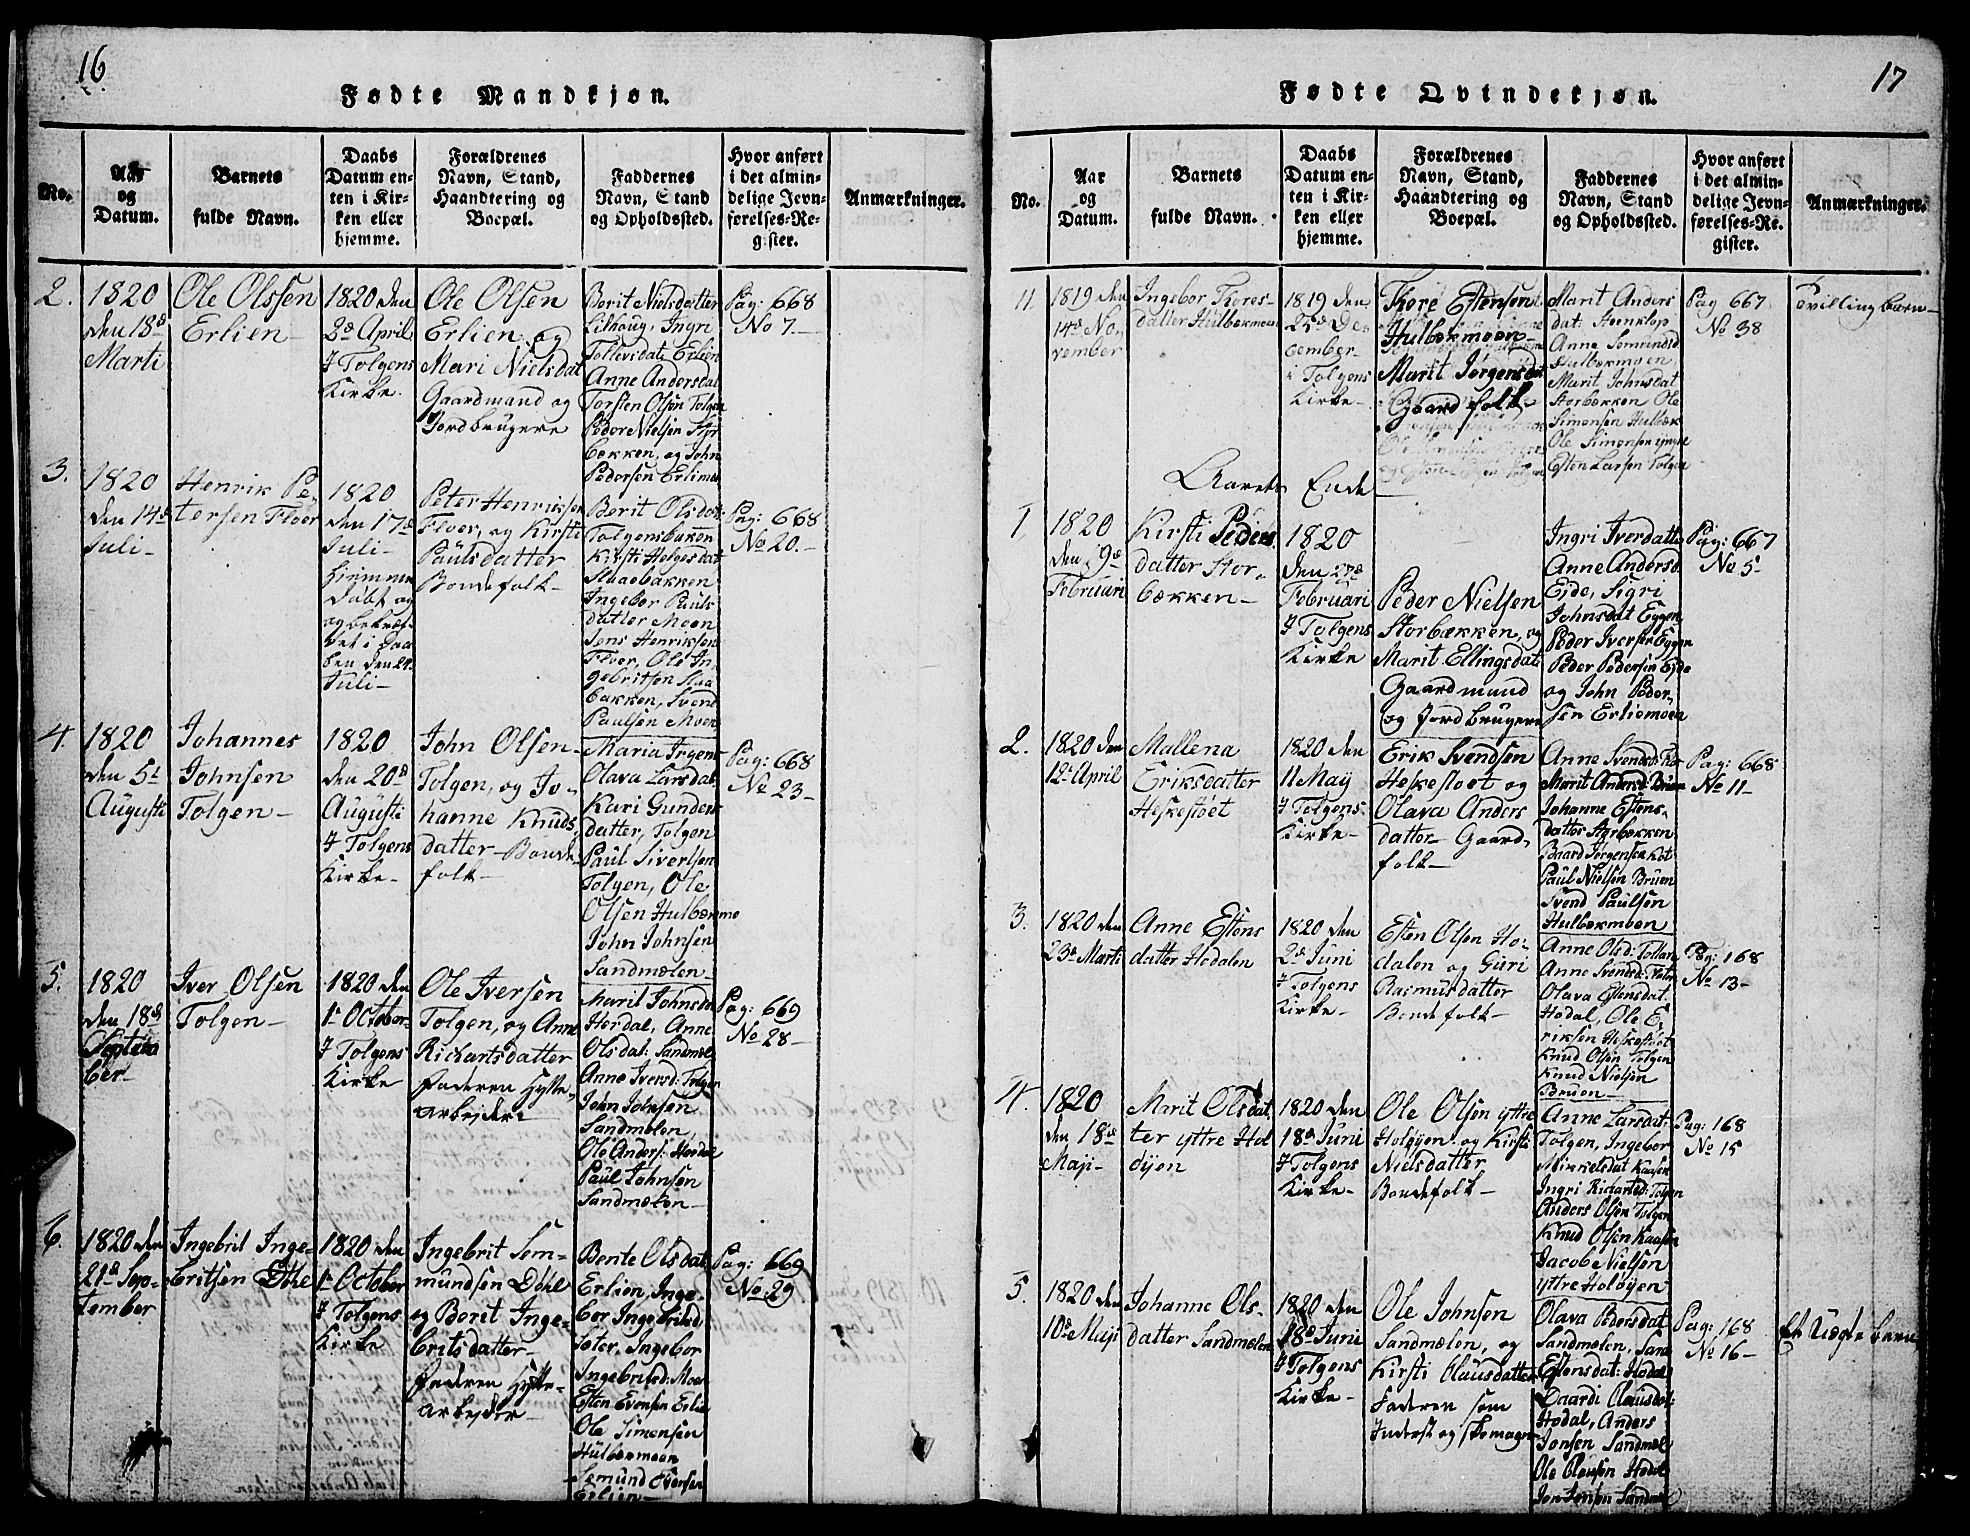 16
Fødte Mandkjøn.
No.
Aar
og
Datum.
Barnets
fulde Navn.
Daabs
Datum en-
ten i Kir-
ken eller
hjemme.
Forældrenes
Navn, Stand,
Haandtering og
Boepæl.
Faddernes
Navn, Stand
og Opholdssted.
Hvor anført
i det almin-
delige Jevn-
førelses-Re-
gister.
Anmærkninger.
2.
1820
den 18d
Marti
Ole Olssen
Erlien
1820 den
2d April
J Tolgens
Kirke
Ole Olsen
Erlien og
Mari Nielsdat
Gaardmand og
Jordbrugere
Berit Nielsdatter
Lilhaug, Ingri
Tollevsdat: Erlien
Anne Andersdat
Torsten Olsen Tolgen
Peder Nielsen Stor
bækken, og John
Pedersen Erlimoe
Pag: 668
No 7.
3.
1820
den 14d
Juli
Henrik Pe-
tersen Floer
1820
den 17d
Juli
hjemme
døbt og
og bekræf-
tet i Daa
ben den 24
Juli
Peter Henriksen
Floer, og Kirsti
Paulsdatter
Bondefolk
Berit Olsdat:
Tolgensbaken
Kirsti Helgesdat
Ingebor Pauls
datter Moen
Jens Henriksen
Floer, Ole In-
gebritsen
bakken, Svend
Paulsen Moen
Pag: 668
No 20.
4.
1820
den 5t
Augusti
Johannes
Johnsen
Tolgen
1820
den 20d
Augusti
J Tolgens
Kirke
John Olsen
Tolgen, og Jo-
hanne Knuds
datter Bonde-
folk
Maria Irgens
Olava Larsdat
Kari Gunders
datter, Tolgen
Paul Sivertsen
Tolgen, Ole
Olsen Hulbækmo
John Johnsen
Sandmælen
Pag: 668
No 23
5.
1820
den 18d
Septem
ber
Iver Olsen
Tolgen
1820 den
1t October
J Tolgens
Kirke
Ole Iversen
Tolgen, og Anne
Richartsdatter
Faderen Hytte-
arbejder
Marit Johnsdat
Hordal, Anne
Olsdat: Sandmæl
Anne Iversd: Tolgen
John Johnsen
Sandmælen
Ole Anders: Hordal
Paul Johnsen
Sandmælen
Pag: 669
No 28
6.
1820 den
21d Sep-
tember
Ingebrit Inge-
britsen Døhl
1820 den
1t October
J Tolgens
Kirke
Ingebrit Sem-
mundsen Døhl
og Berit Inge-
britsdatter
Faderen Hytte-
arbejder
Bente Olsdat
Erlien, Inge-
bor Ingebritsd
Ingebor
Ingebritsd: Moen
Esten Evensen Erlie
Ole Simensen
Hulbækmoen
Semund Iversen
Erlien
Pag: 669
No: 29
17
Fødte Qvindekjøn.
No.
Aar
og
Datum.
Barnets
fulde Navn.
Daabs
Datum en-
ten i Kir-
ken eller
hjemme.
Forældrenes
Navn, Stand,
Haandtering og
Boepæl.
Faddernes
Navn, Stand
og Opholdssted.
Hvor anført
i det almin-
delige Jevn-
førelses-Re-
gister.
Anmærkninger.
11.
1819 den
14d No-
vember
Ingebor Tores-
datter Hulbækmoen
1819 den
25d De-
cember
i Tolgens
Kirke
Tore Estensen
Hulbækmoen
Marit Jørgensdat
Gaardfolk
Marit Anders
dat:
Anne Semundsd
Hulbækmoen
Marit Johnsdat
Storbækken Ole
Simensen Hulbæk
Ole Simensen yngre
Esten Larsen Tolgen
Pag 667
No 38
Tvillingbarn
Aarets Ende
1
1820
den 9d
Februari
Kirsti Peders
datter Stor-
bækken
1820
den 27d
Februari
J Tolgens
Kirke
Peder Nielsen
Storbækken, og
Marit Ellingsdat
Gaardmand
og Jordbrugere
Ingri Iverdatter
Anne Andersd
Eide, Sigri
Johnsdat Eggen
Peder Iversen Eggen
Peder Pedersen Eide
og John Peder-
sen Erliemoen
Pag: 667
No 5
2.
1820 den
12t April
Mallena
Eriksdatter
Heskestøet
1820 den
11 Maij
J Tolgens
Kirke
Erik Svendsen
Heskestoet og
Olava Anders
datter Gaard-
folk
Anne Svendsd:
Marit Andersd: Bruen
Johanne Estens-
datter Storbækken
Baard Jørgensen
Paul Nielsen Bruen
Svend Paulsen
Hulbækmoen
Pag: 668
No 11
3.
1820 den
23d Marti
Anne Estens
datter Hodalen
1820 den
2d Juni
J Tolgens
Kirke
Esten Olsen Ho-
dalen og Guri
Rasmusdatter
Bondefolk
Anne Olsd:
Anne Svendsd:
Olava Estensdat.
Hodal, Ole E-
riksen Heskestøet
Knud Olsen Tolgen
Knud Nielsen
Bruen
Pag: 168
No 13
4.
1820
den 18de
Maji
Marit Olsdat
ter ytre Hol
øyen
1820 den
18d Juni
J Tolgens
Kirke
Ole Olsen yttre
Holøyen og Kirsti
Nielsdatter
Bondefolk
Anne Larsdat:
Tolgen, Ingebor
Mikkelsdat Kaasen
Ingri Richartsd: Tolgen
Anders Olsen Tolgen
Knud Olsen Kaasen
Jacob Nielsen
yttre Holøyen
Pag: 168
No 15
5.
1820 den
10de Maji
Johanne Ols-
datter Sandmælen
1820 den
18d Juni
J Tolgens
Kirke
Ole Johnsen
Sandmælen, og
Kirsti Olausdatter
Faderen som
Inderst og skomager
Olava Pedersdat
Sandmælen, Sara
Estensdat: Hodal
Baardi Olausdat:
Hodal, Anders
Jonsen Sandmæl
Ole Olausen Hodal
Jon Jonsen Sandmæl
Pag: 168
No 16
Et Uægte barn